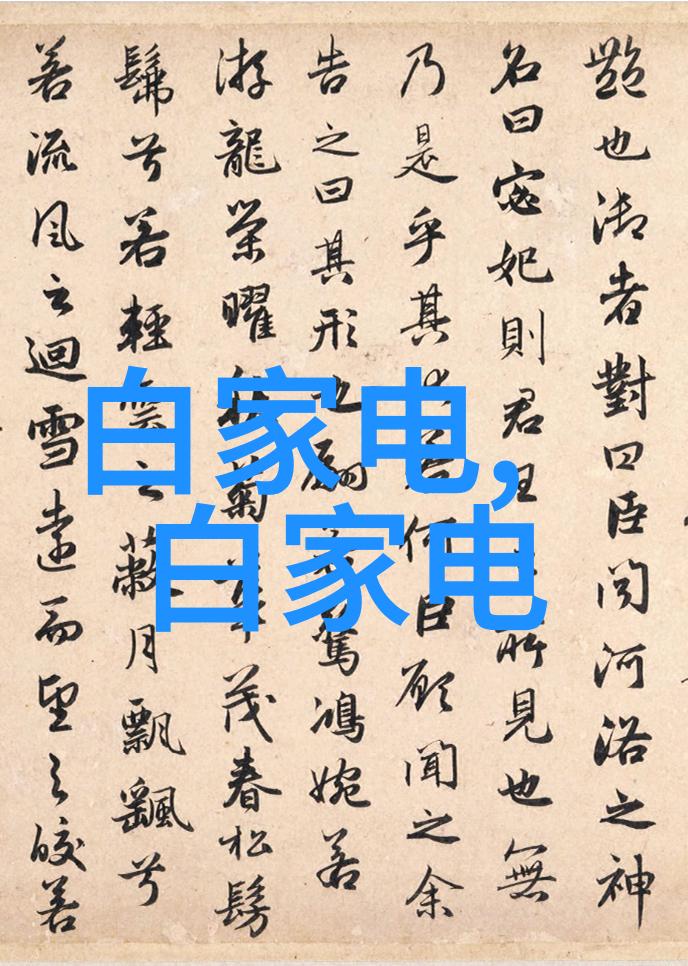 艷也御者對曰臣聞河洛之神
名曰宓妃則君王所見也無
乃是乎其若何臣願聞之余
告之曰其形也翩若驚鴻婉若
游龍榮曜秋菊華茂春松髣
髴兮若輕雲之蔽月飄颻兮
若流風之迴雪遠而望之皎若
白家电，
白家电